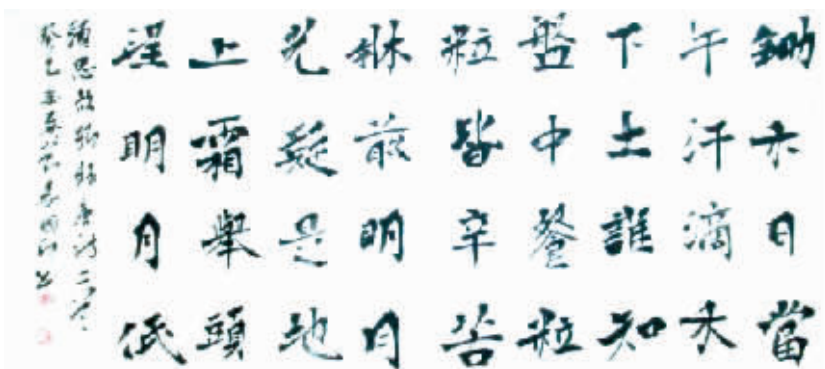 鋤禾日當
午汗滴禾
下土誰知
盤中餐粒
粒皆辛苦
牀前明月
光疑是地
上霜舉頭
望明月低
頭思故鄉錄唐詩二首
癸巳年春